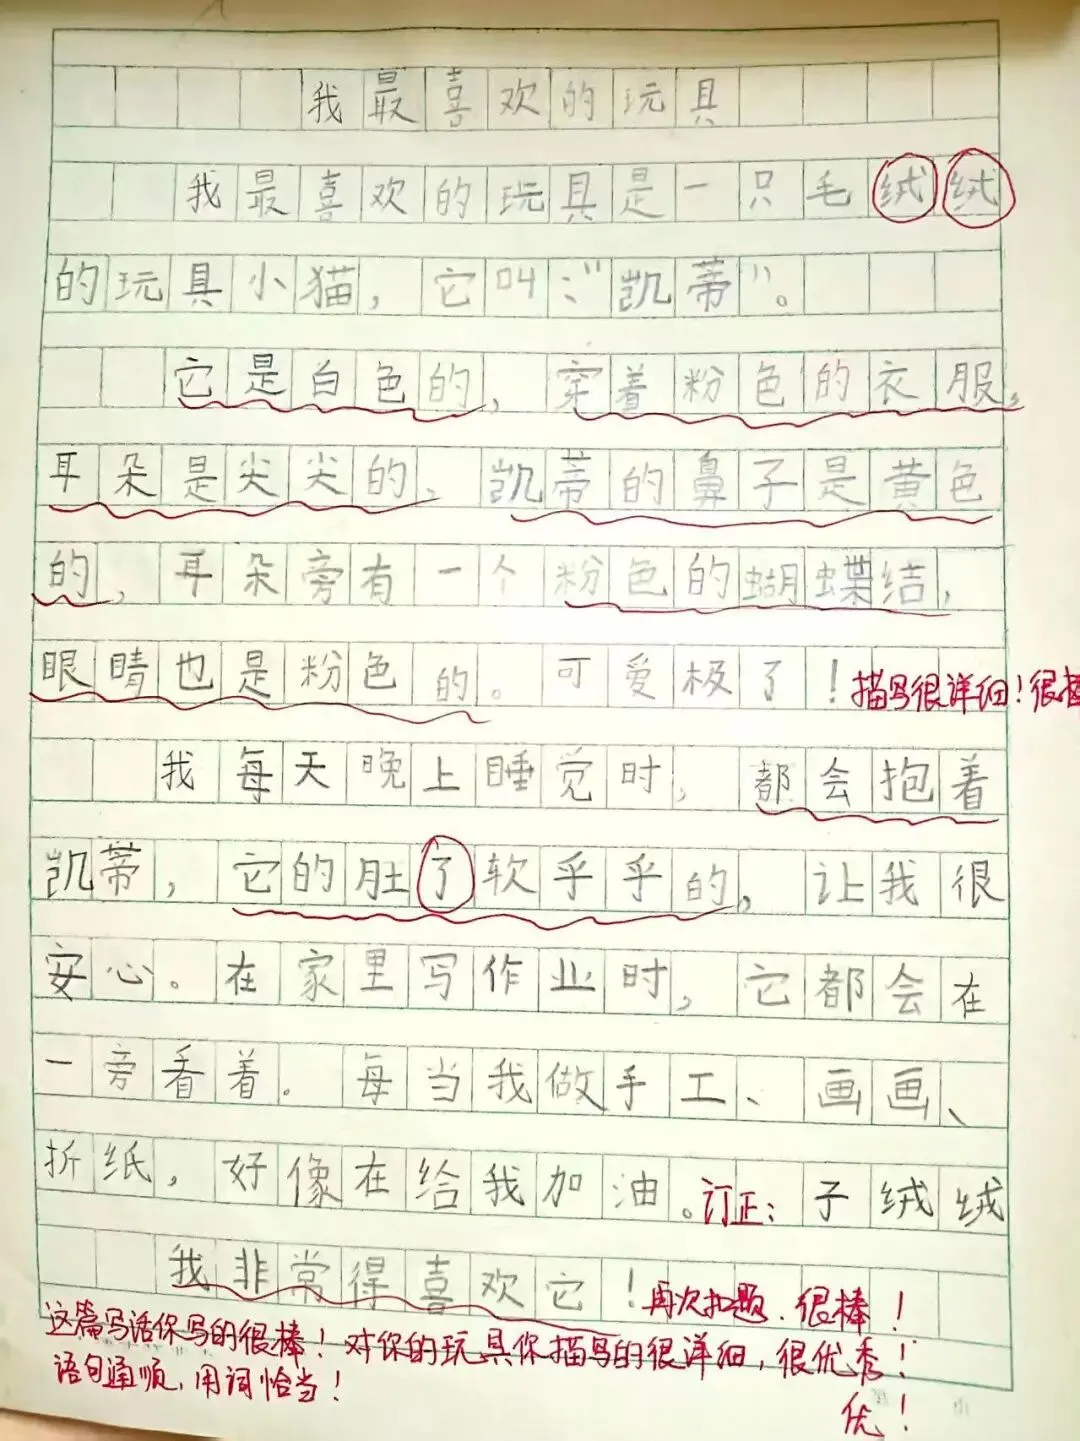 我最喜欢的玩具
我最喜欢的玩具是一只毛绒绒
的玩具小猫，它叫：“凯蒂”。
它是白色的，穿着粉色的衣服，
耳朵是尖尖的、凯蒂的鼻子是黄色
的，耳朵旁有一个粉色的蝴蝶结，
眼睛也是粉色的。可爱极了！描写很详细！很棒
我每天晚上睡觉时，都会抱着
凯蒂，它的肚了软乎乎的，让我很
安心。在家里写作业时，它都会在
一旁看着。每当我做手工、画画、
折纸，好像在给我加油。订正：子绒绒
我非常得喜欢它！再次扣题、很棒！
这篇写话你写的很棒！对你的玩具你描写的很详细，很优秀！
语句通顺，用词恰当！
优！